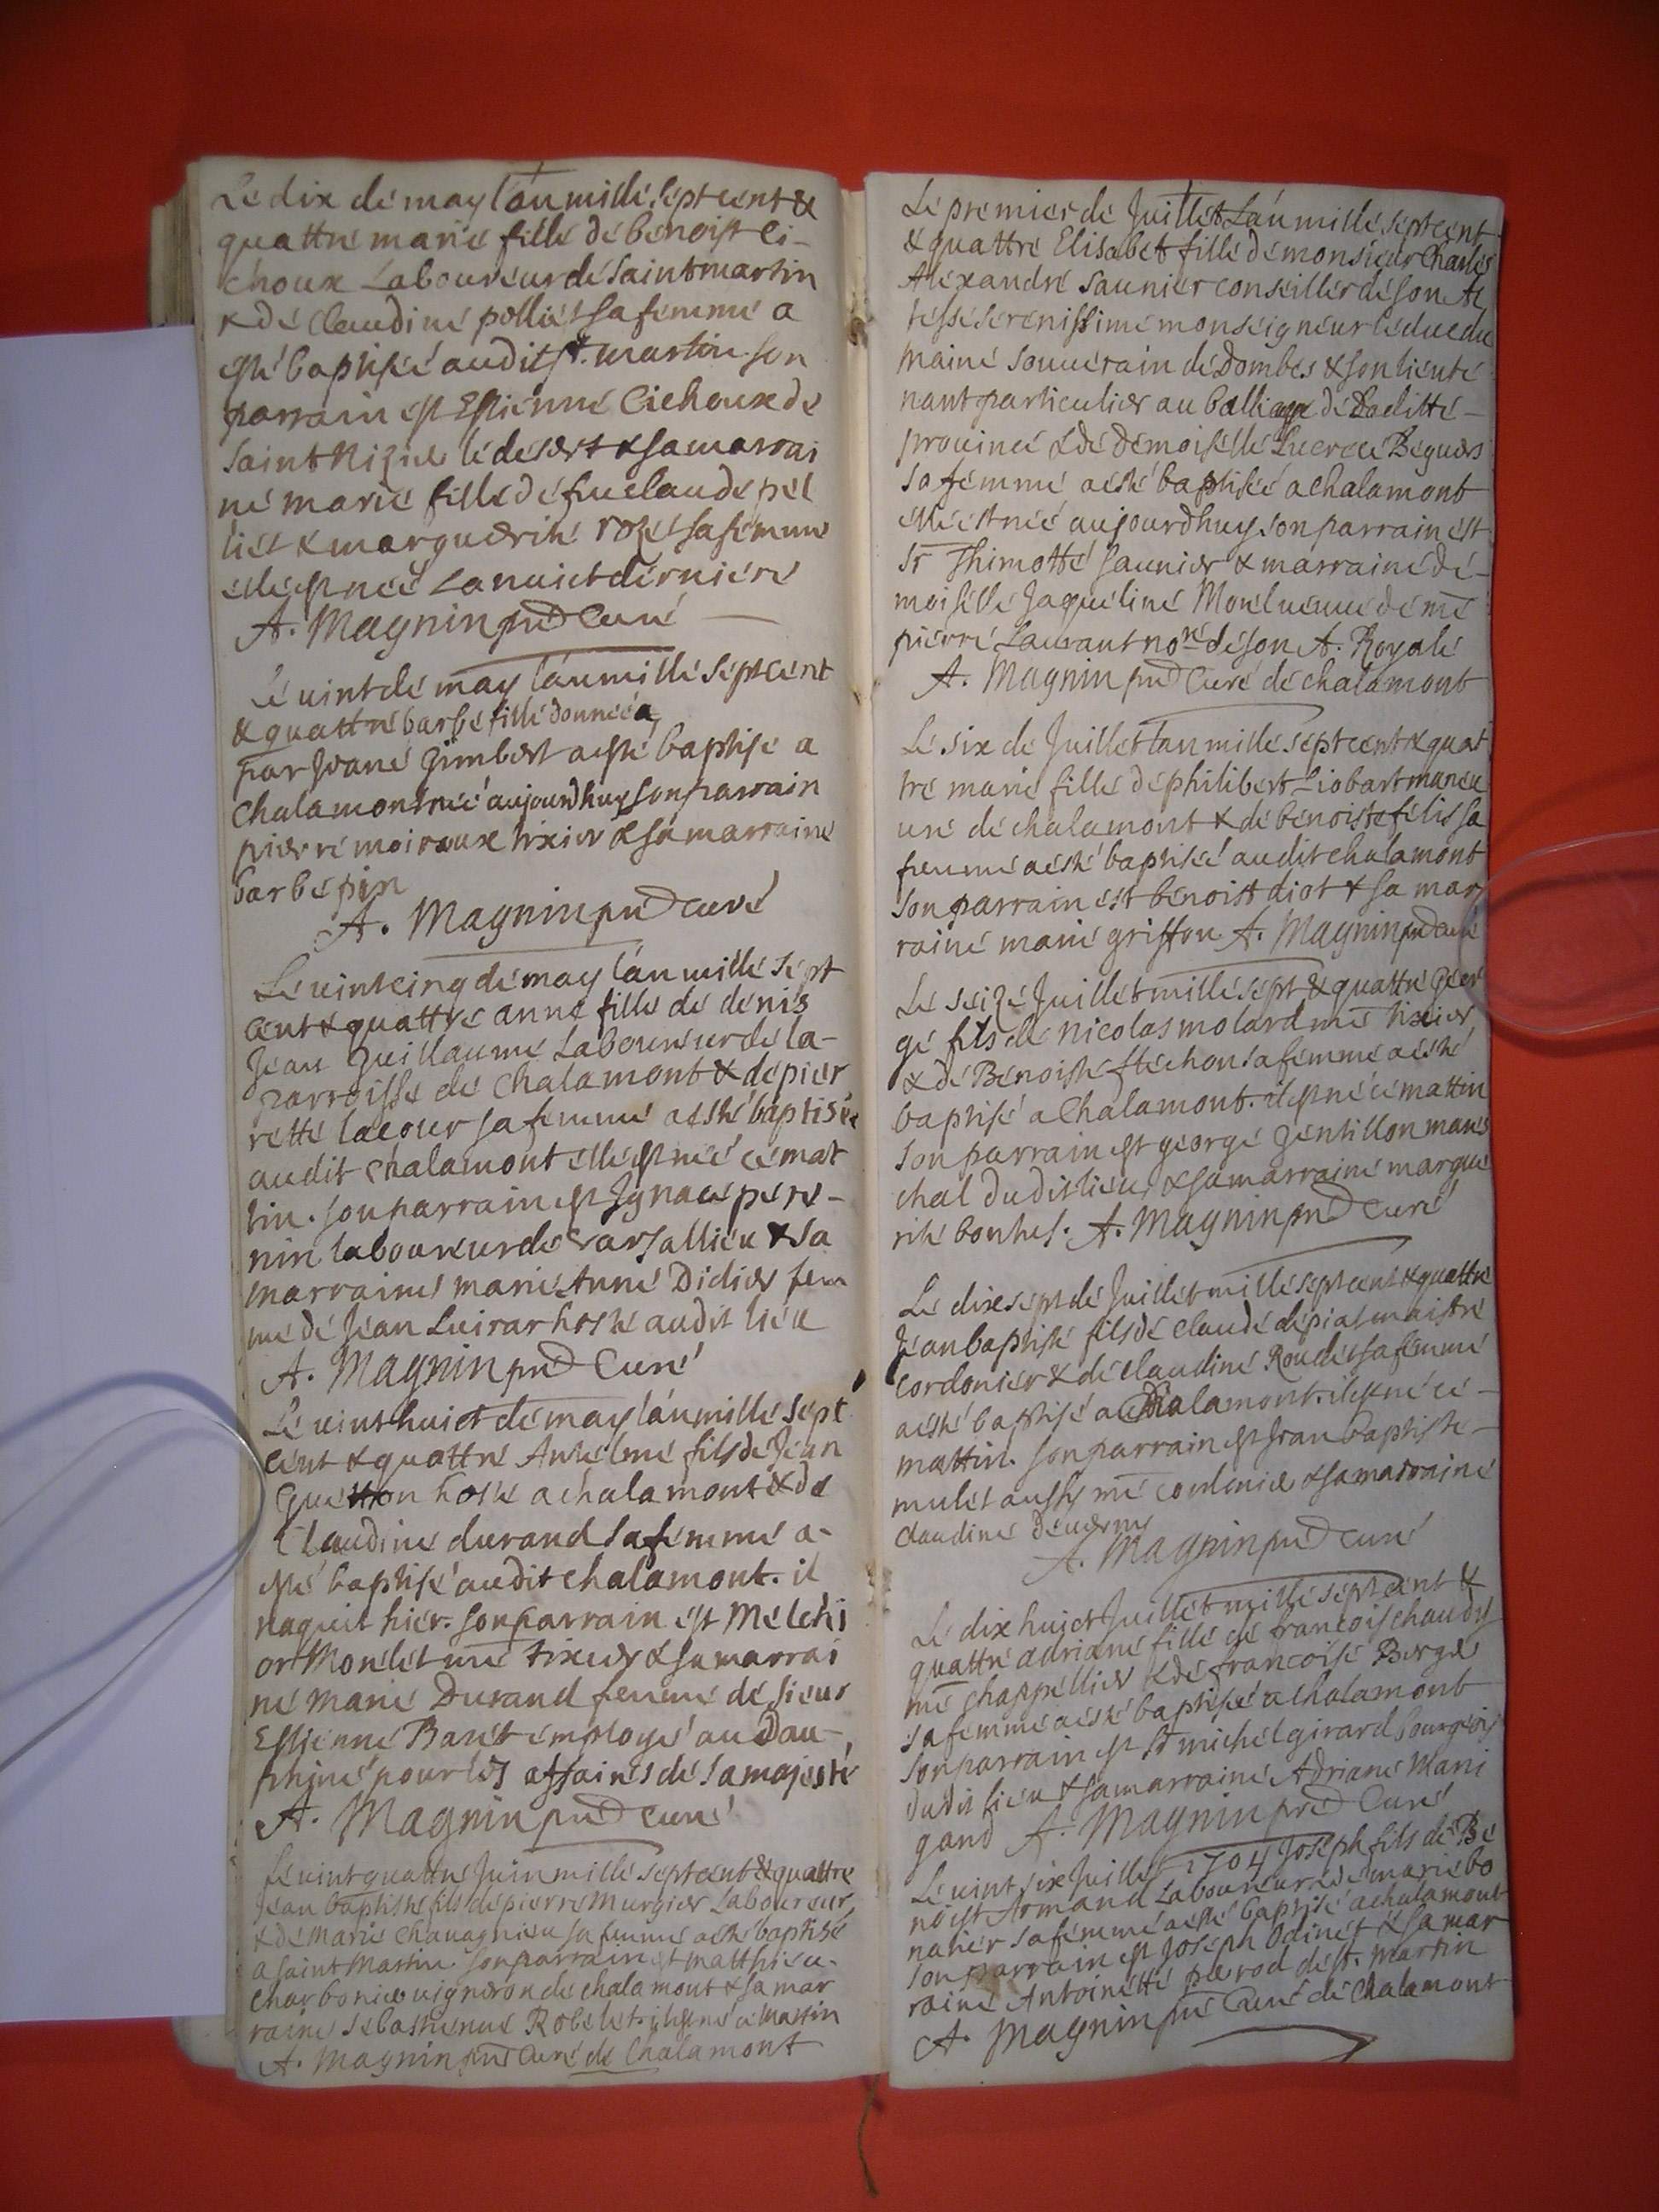 Le dix de may l'an mille sept cent &
quattre marie fille de benoist ci-
choux Laboureur de saint martin
& de claudine polliet sa femme a
esté baptisée audit st. martin son
parrain est Estienne Cichoux de
saint Nizier le desert & sa marrai
ne marie fille de fu claude pel
liet & marguerite rozet sa femme
elle est née la nuict derniere
A. Magnin pnt Curé
Le vint de may l'an mille sept cent
& quattre barbe fille donnée a
par Jeane Gimbert a esté baptisé a
chalamont née aujourdhuy son parrain
pierre moiroux tixier & sa marraine
barbe pin
A. Magnin pnt curé
Le vint cinq de may l'an mille sept
cent & quattre anne fille de denis
Jean Guillaume Laboureur de la-
parroisse de chalamont & de pier
rette lacour sa femme a esté baptisée
audit chalamont elle est née ce mat
tin. son parrain est Ignace pere-
nin laboureur de & sa
marraine marie Anne Didier fem
me de Jean Luirar hoste audit lieu
A. Magnin pnt Curé
Le vint huict de may l'an mille sept
cent & quattre Antelme fils de Jean
hoste a chalamont & de
Claudine durand sa femme a-
esté baptisé audit chalamont. il
naquit hier. son parrain est Melchi
or Monlet me tixier & sa marrai
ne marie Durand femme de sieur
Estienne Baret employé au Dau-
phiné pour les affaires de sa majesté
A. Magnin pnt curé
Le vint quattre Juin mille sept cent & quattre
Jean baptiste fils de pierre Murgier Laboureur,
& de Marie Chavagnieu sa femme a esté baptisé
a saint Martin son parrain est matthieu-
charbonier vigneron de chalamont & sa mar
raine sebastienne Robelet il est né ce mattin
A. Magnin pnt Curé de Chalamont
Le premier de Juillet L'an mille sept cent
& quattre Elisabet fille de monsieur Charles
Alexandre saunier conseiller de son Al
tesse serenissime monseigneur le duc du
maine souverain de Dombes & son lieute
nant particulier au balliage de Laditte-
province & de demoiselle Lucrece Beguers
sa femme a esté baptisée a chalamont
elle est née aujourdhuy son parrain est
sr Thimotté saunier & marraine de-
moiselle Jaqueline Monluenue de me
pierre Laurant nore de son A. Royale
A. Magnin pnt Curé de chalamont
Le six de Juillet l'an mille sept cent & quat
tre marie fille de philibert Liobart maneu
vre de chalamont & de benoiste felis sa
femme a esté baptisé audit chalamont
son parrain est benoist diot & sa mar
raine marie griffon A. Magnin pnt curé
Le seize Juillet mille sept & quattre Geor
ge fils de Nicolas molard me tixier,
& de Benoiste stechon sa femme a esté
baptisé a Chalamont. il est né ce mattin
son parrain est george gentillon mares
chal dudit lieu, & sa marraine margue
rite bonhes. A. Magnin pnt Curé
Le dixsept de Juillet mille sept cent & quattre
Jean baptiste fils de claude depiat maistre
cordonier & de claudine Roudet sa femme
a esté baptisé a Chalamont. il est né ce-
mattin. son parrain est Jean baptiste-
mulet aussy me cordonier & sa marraine
claudine
A. Magnin pnt curé
Le dix huict Juillet mille sept cent &
quattre adriane fille de francois chaudy
me chappellier & de francoise Berger
sa femme a esté baptisée a chalamont
son parrain est sr michel girard bourgeois
dudit lieu & sa marraine Adriane Mari
gand A. Magnin pnt Curé
Le vint six Juillet 1704 Joseph fils de Be
noist Armand Laboureur & de marie bo
natier sa femme a esté baptisé a chalamont
son parrain est Joseph Odinet & sa mar
raine Antoinette perrod de st. Martin
A. Magnin pnt Curé de Chalamont